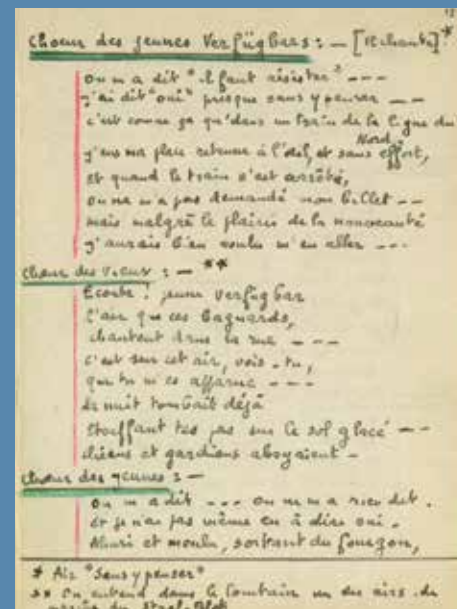 Chœur des jeunes Verfügbars : — [Rechante]*
on m'a dit "il faut résister" ---
j'ai dit "oui" presque sans y penser ---
c'est comme ça qu'dans un train de la ligne du
Nord,
j'eus ma place retenue à l'œil, et sans effort,
et quand le train s'est arrêté,
on ne m'a pas demandé mon billet --
mais malgré le plaisir de la nouveauté
j'aurais bien voulu m'en aller ---
Chœur des vieux : — **
Ecoute ! jeune Verfügbar
l'air que ces bagnards,
chantent dans la rue ---
c'est sur cet air, vois-tu,
que tu m'es ---
la nuit tombait déjà
Etouffant tes pas sur le sol glacé --
chiens et gardiens aboyaient -
Chœur des jeunes : —
on m'a dit --- on ne m'a rien dit.
et je n'ai pas même eu à dire oui.
Ahuri et moulu, sortant du fourgon,
* Air "Sans y penser"
** On entend dans le lointain un des airs de
du